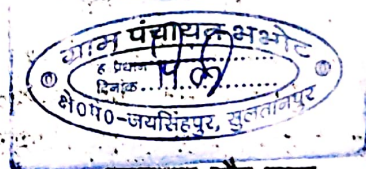 ग्राम पंचायत भभोट
ह प्रधान ..........
दिनांक ..........
क्षे0पं0-जयसिंहपुर, सुलतानपुर